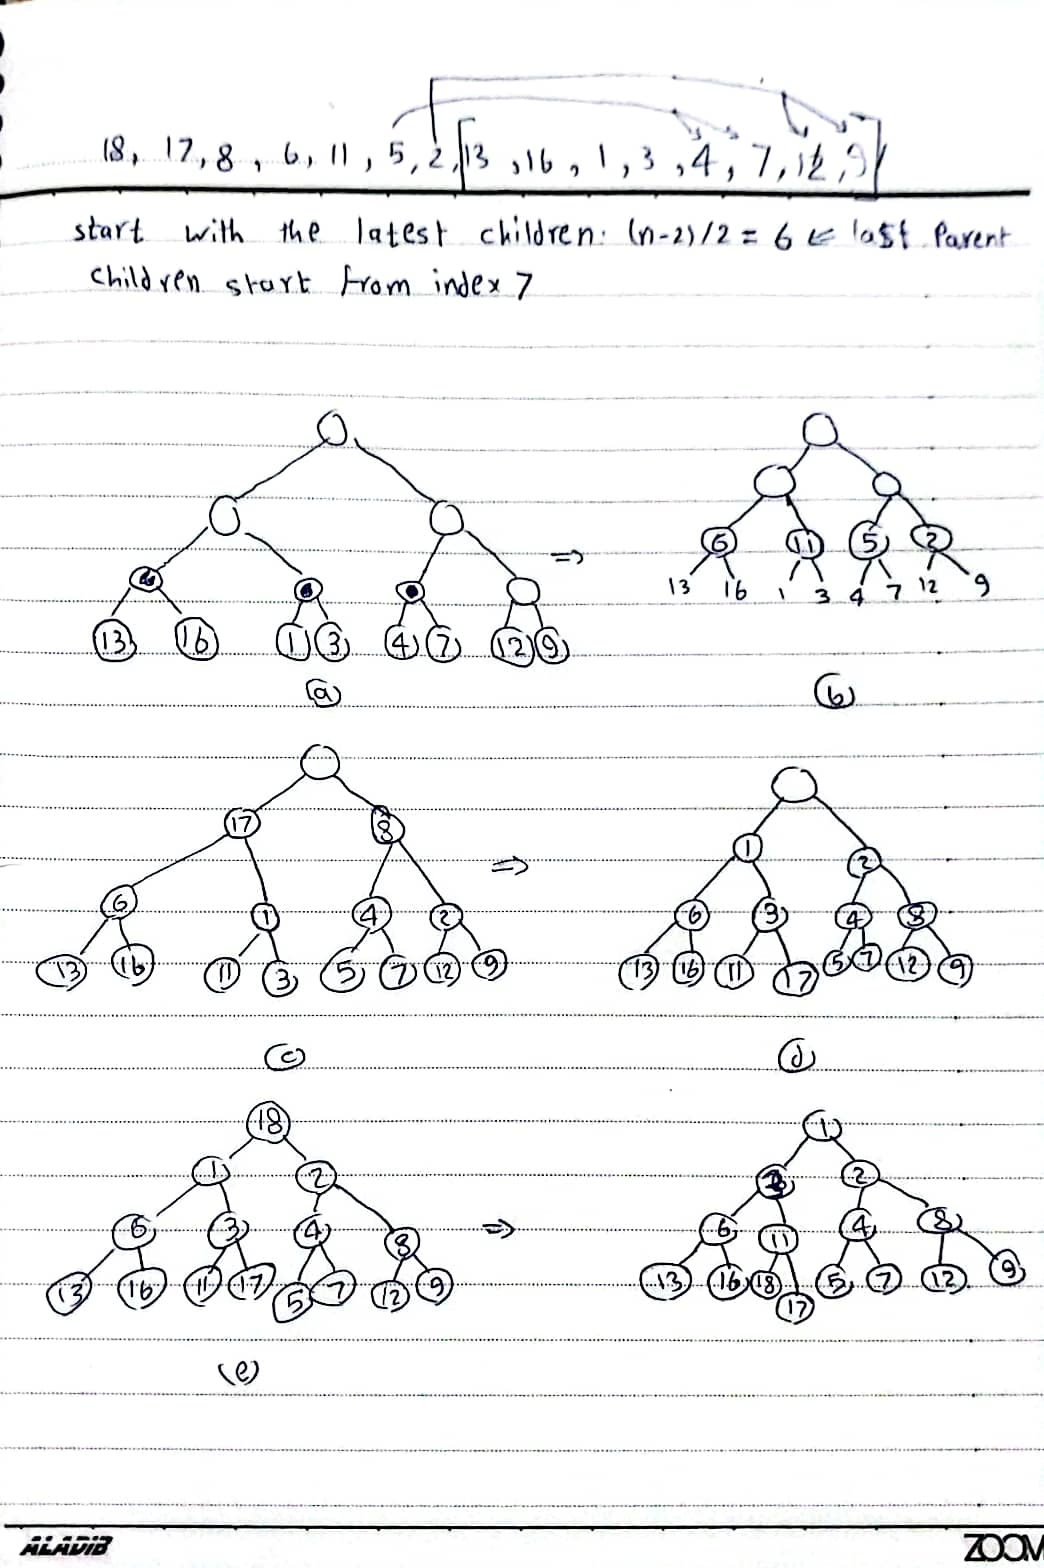 18, 17, 8, 6, 11, 5, 2, [13, 16, 1, 3, 4, 7, 12, 9]
start with the latest children: (n-2)/2 = 6 ⇐ last Parent
children start from index 7
13 16 1 3 4 7 12 9
(a)
6 11 5 2
13 16 1 3 4 7 12 9
(b)
17 8
6 1 4 2
13 16 11 3 5 7 12 9
(c)
1 2
6 3 4 8
13 16 11 17 5 7 12 9
(d)
18
1 2
6 3 4 8
13 16 11 17 5 7 12 9
(e)
1
2
6 11 4 8
13 16 18 17 5 7 12 9
ALADIB
ZOOM